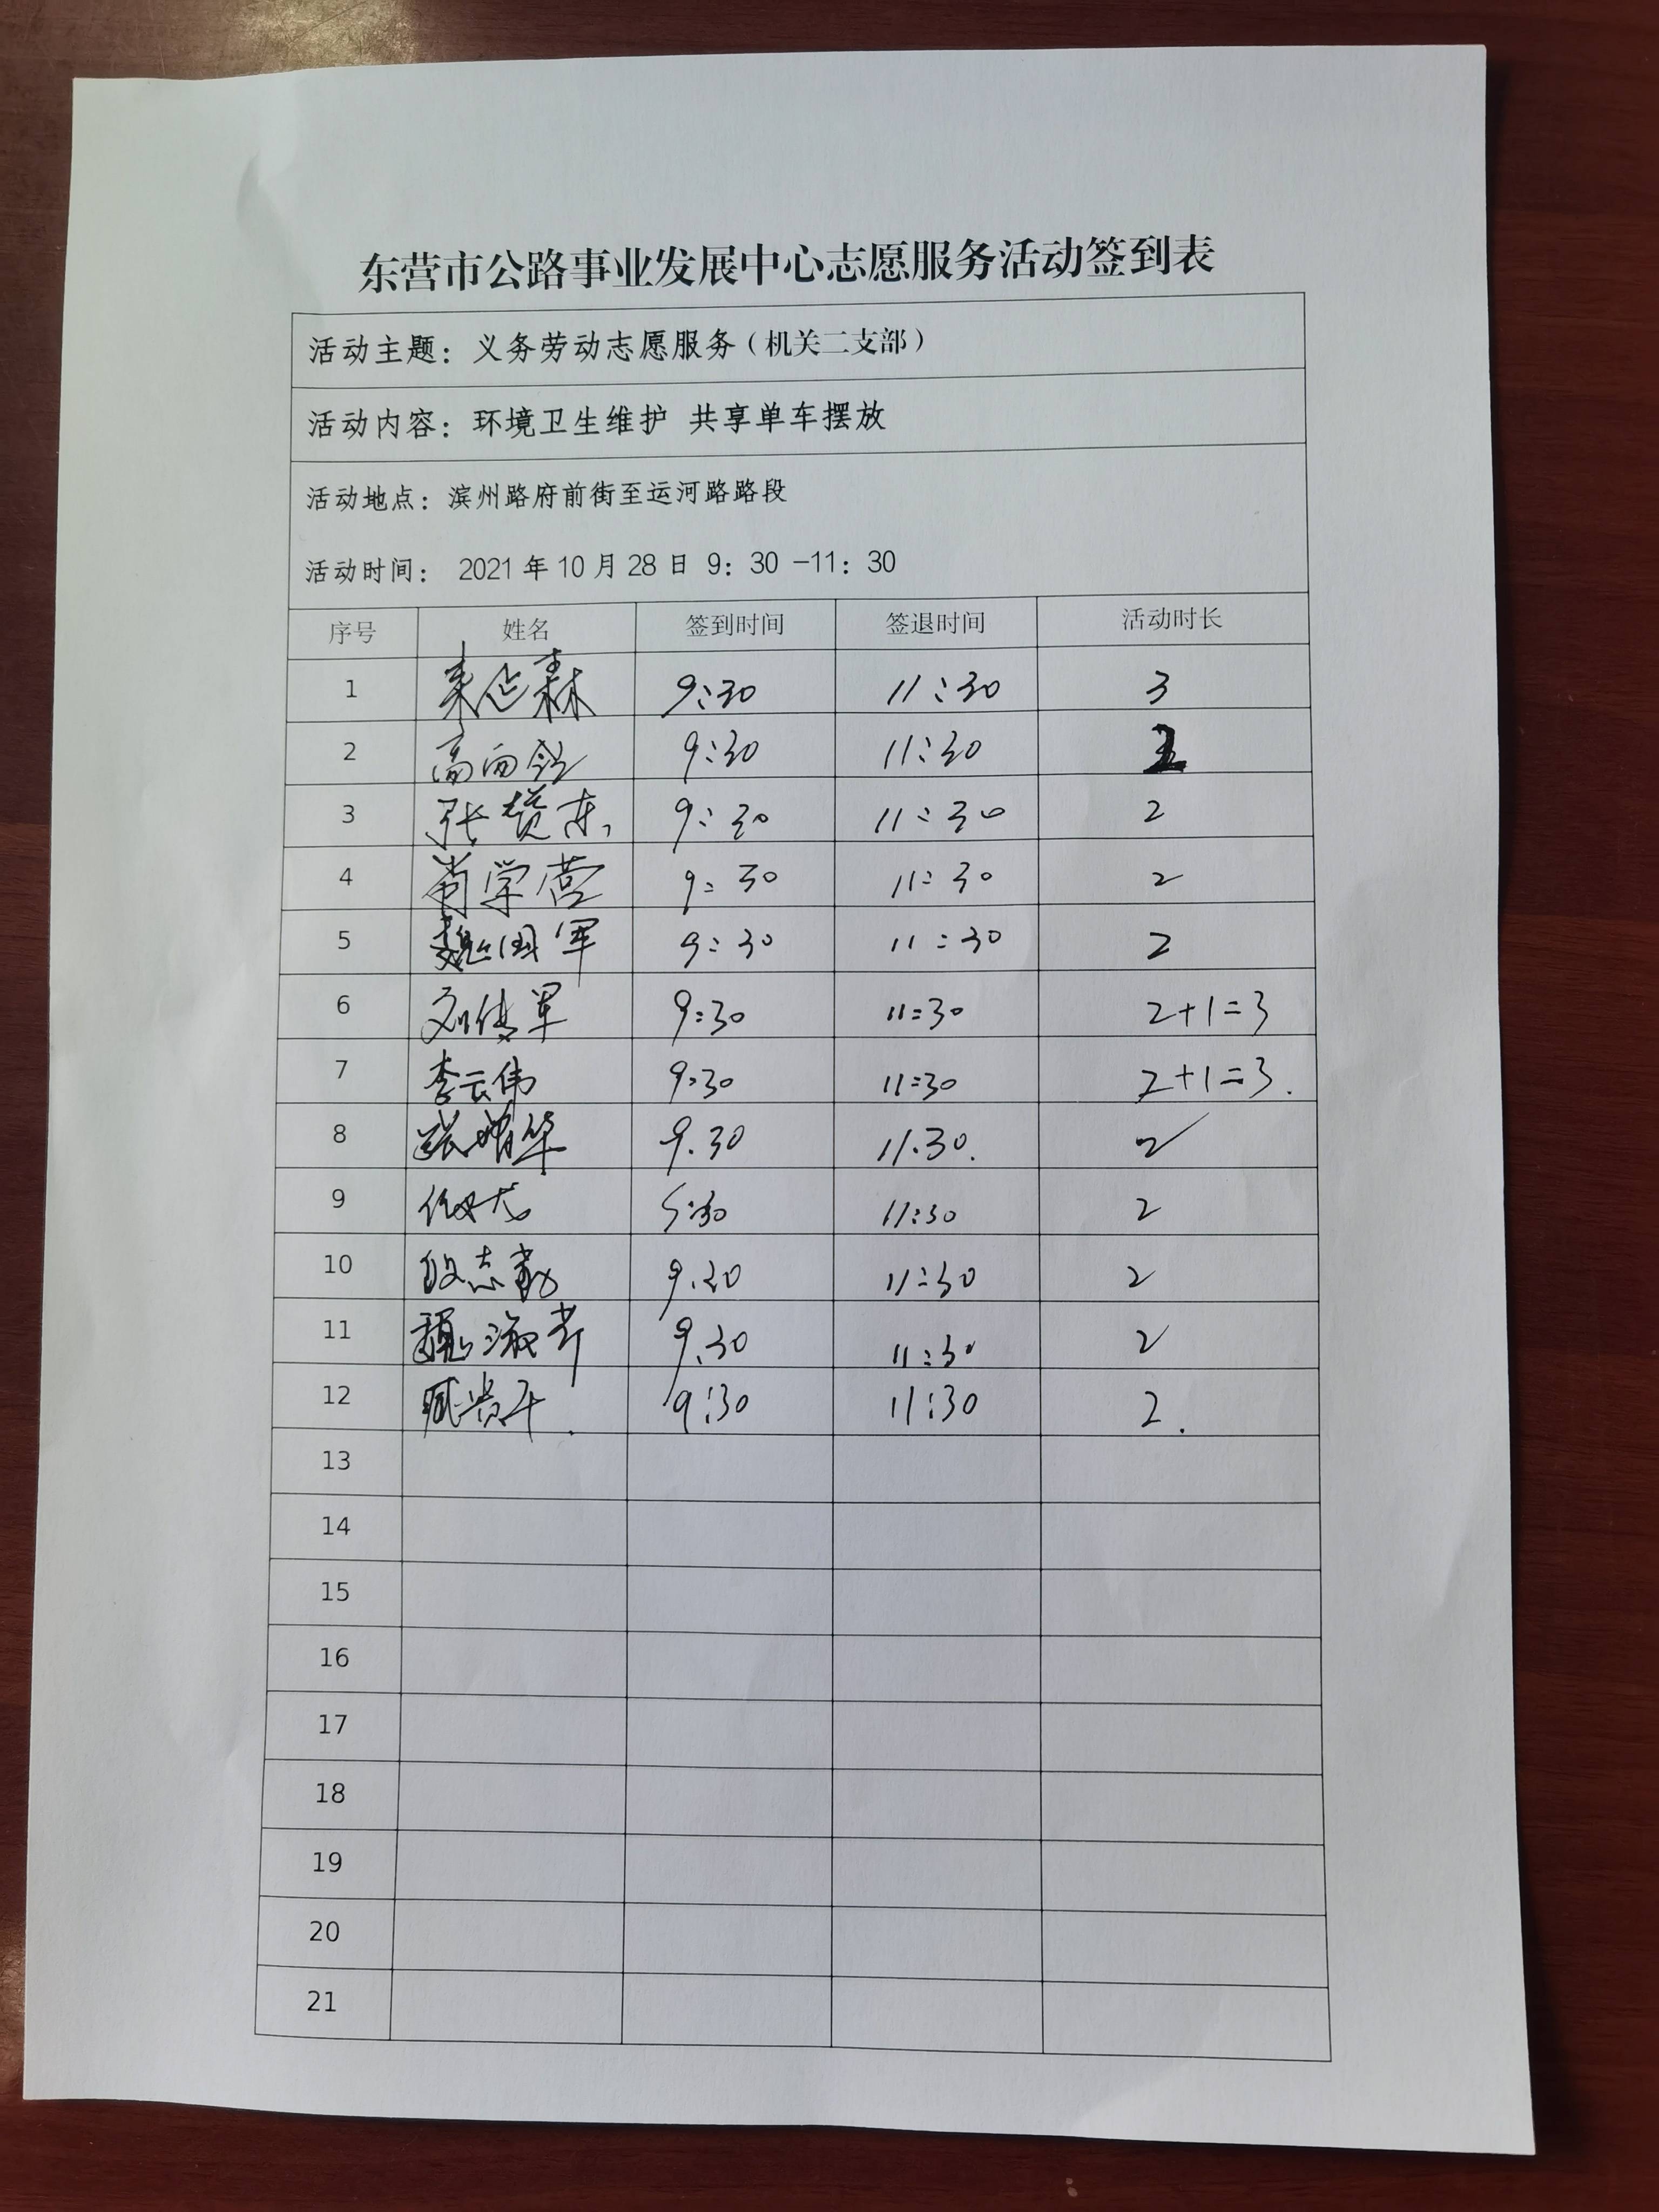 东营市公路事业发展中心志愿服务活动签到表
活动主题：义务劳动志愿服务（机关二支部）
活动内容：环境卫生维护 共享单车摆放
活动地点：滨州路府前街至运河路路段
活动时间： 2021年10月28日 9：30 -11：30
序号 姓名 签到时间 签退时间 活动时长
1 9:30 11:30 3
2 9:30 11:30
3 张赞东 9:30 11:30 2
4 肖学营 9:30 11:30 2
5 魏国军 9:30 11:30 2
6 刘传军 9:30 11:30 2+1=3
7 李云伟 9:30 11:30 2+1=3.
8 9.30 11.30. 2
9 11:30 2
10 段志勤 9.30 11:30 2
11 魏淑芹 9.30 11:30 2
12 臧贵 9:30 11:30 2.
13
14
15
16
17
18
19
20
21